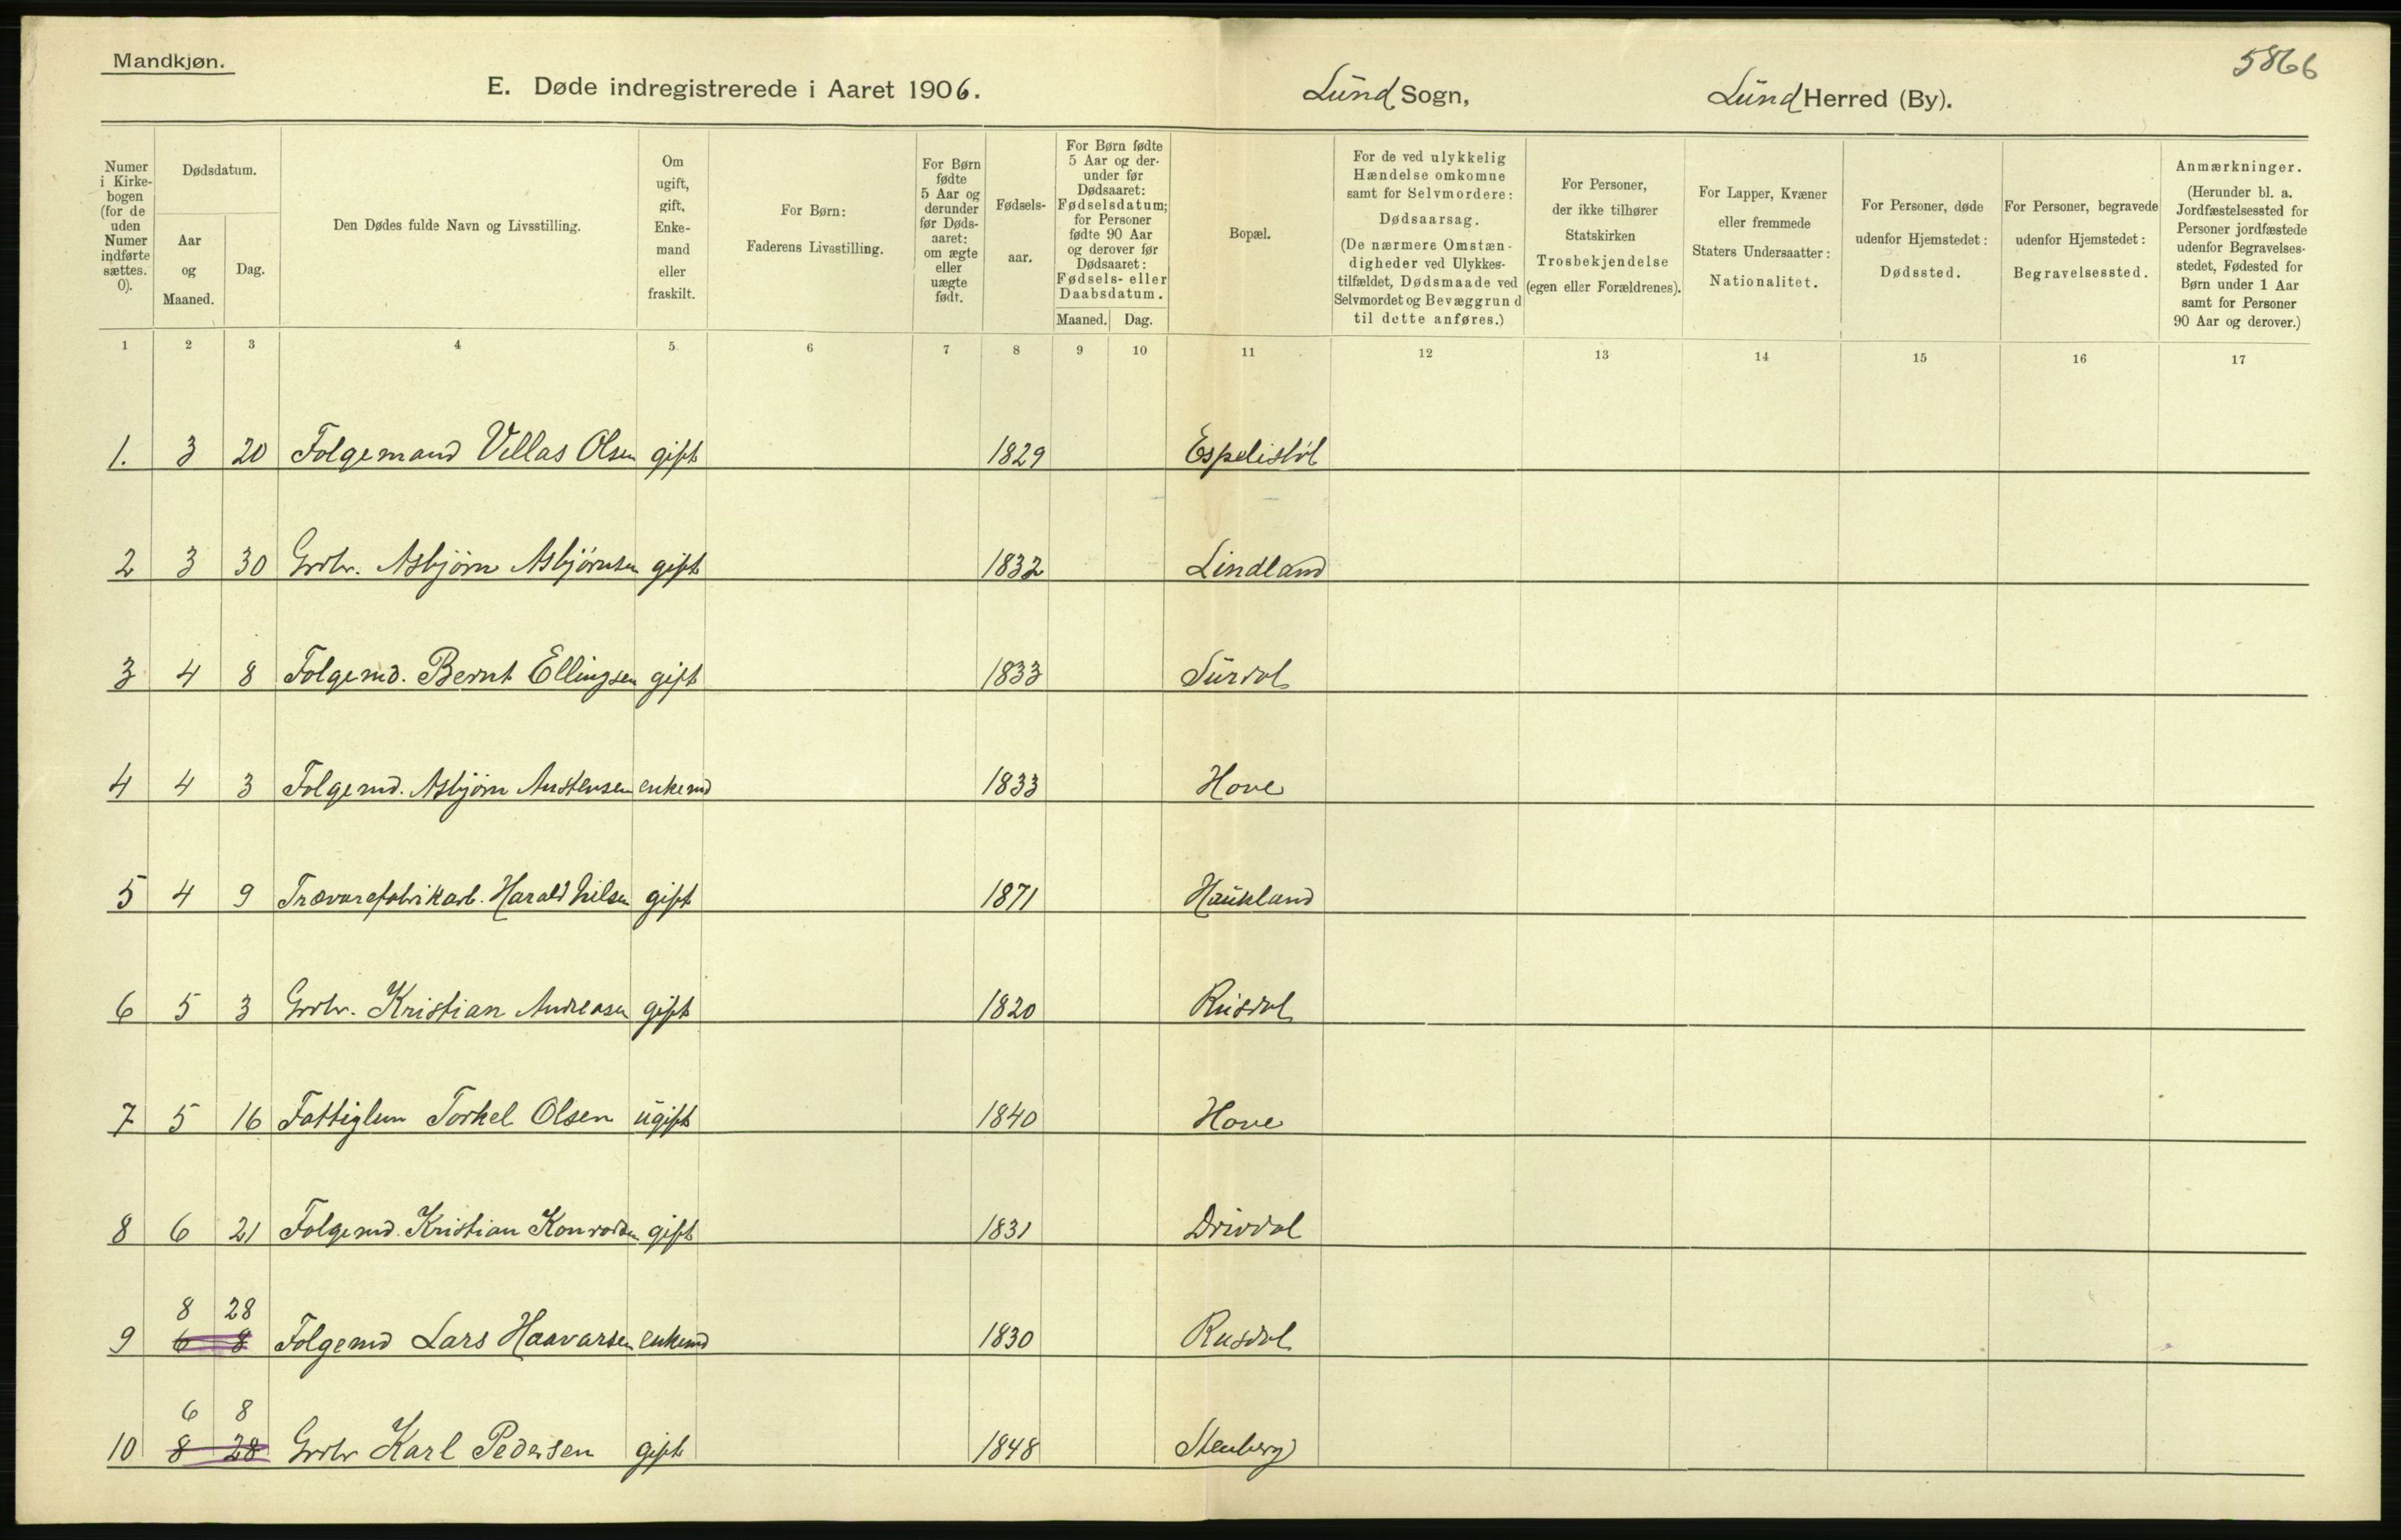 Mandkjøn.
5866
E. Døde indregistrerede i Aaret 1906. Lund Sogn, Lund Herred (By).
Numer i Kirkebogen (for de uden Numer indførte sættes. 0).
Dødsdatum.
Aar og Maaned.
Dag.
Den Dødes fulde Navn og Livsstilling.
Om ugift, gift, Enkemand eller fraskilt.
For Børn: Faderens Livsstilling.
For Børn fødte 5 Aar og derunder før Dødsaaret: om ægte eller uægte født.
Fødselsaar.
For Børn fødte 5 Aar og derunder før Dødsaaret: Fødselsdatum; for Personer fødte 90 Aar og derover før Dødsaaret: Fødsels- eller Daabsdatum.
Maaned. Dag.
Bopæl.
For de ved ulykkelig Hændelse omkomne samt for Selvmordere: Dødsaarsag. (De nærmere Omstændigheder ved Ulykkestilfældet, Dødsmaade ved Selvmordet og Bevæggrund til dette anføres.)
For Personer, der ikke tilhører Statskirken Trosbekjendelse (egen eller Forældrenes).
For Lapper, Kvæner eller fremmede Staters Undersaatter: Nationalitet.
For Personer, døde udenfor Hjemstedet: Dødssted.
For Personer, begravede udenfor Hjemstedet: Begravelsessted.
Anmærkninger. (Herunder bl. a. Jordfæstelsessted for Personer jordfæstede udenfor Begravelsesstedet, Fødested for Børn under 1 Aar samt for Personer 90 Aar og derover.)
1 2 3 4 5 6 7 8 9 10 11 12 13 14 15 16 17
1. 3 20 Folgemand Villas Olsen gift 1829 Espelistøl
2 3 30 Grbr. Asbjørn Asbjørnsen gift 1832 Lindland
3 4 8 Folgemd. Bernt Ellingsen gift 1833 Surdal
4 4 3 Folgemd. Asbjørn Austensen enkemd 1833 Hove
5 4 9 Trævarefabrikarb. Harald Nilsen gift 1871 Haukland
6 5 3 Grbr. Kristian Andreasen gift 1820 Rusdal
7 5 16 Fattiglem Torkel Olsen ugift 1840 Hove
8 6 21 Folgemd. Kristian Konradsen gift 1831 Drivdal
8 28
9 6 8 Folgemd Lars Haavarsen enkemd 1830 Rusdal
6 8
10 8 28 Grbr Karl Pedersen gift 1848 Stenberg